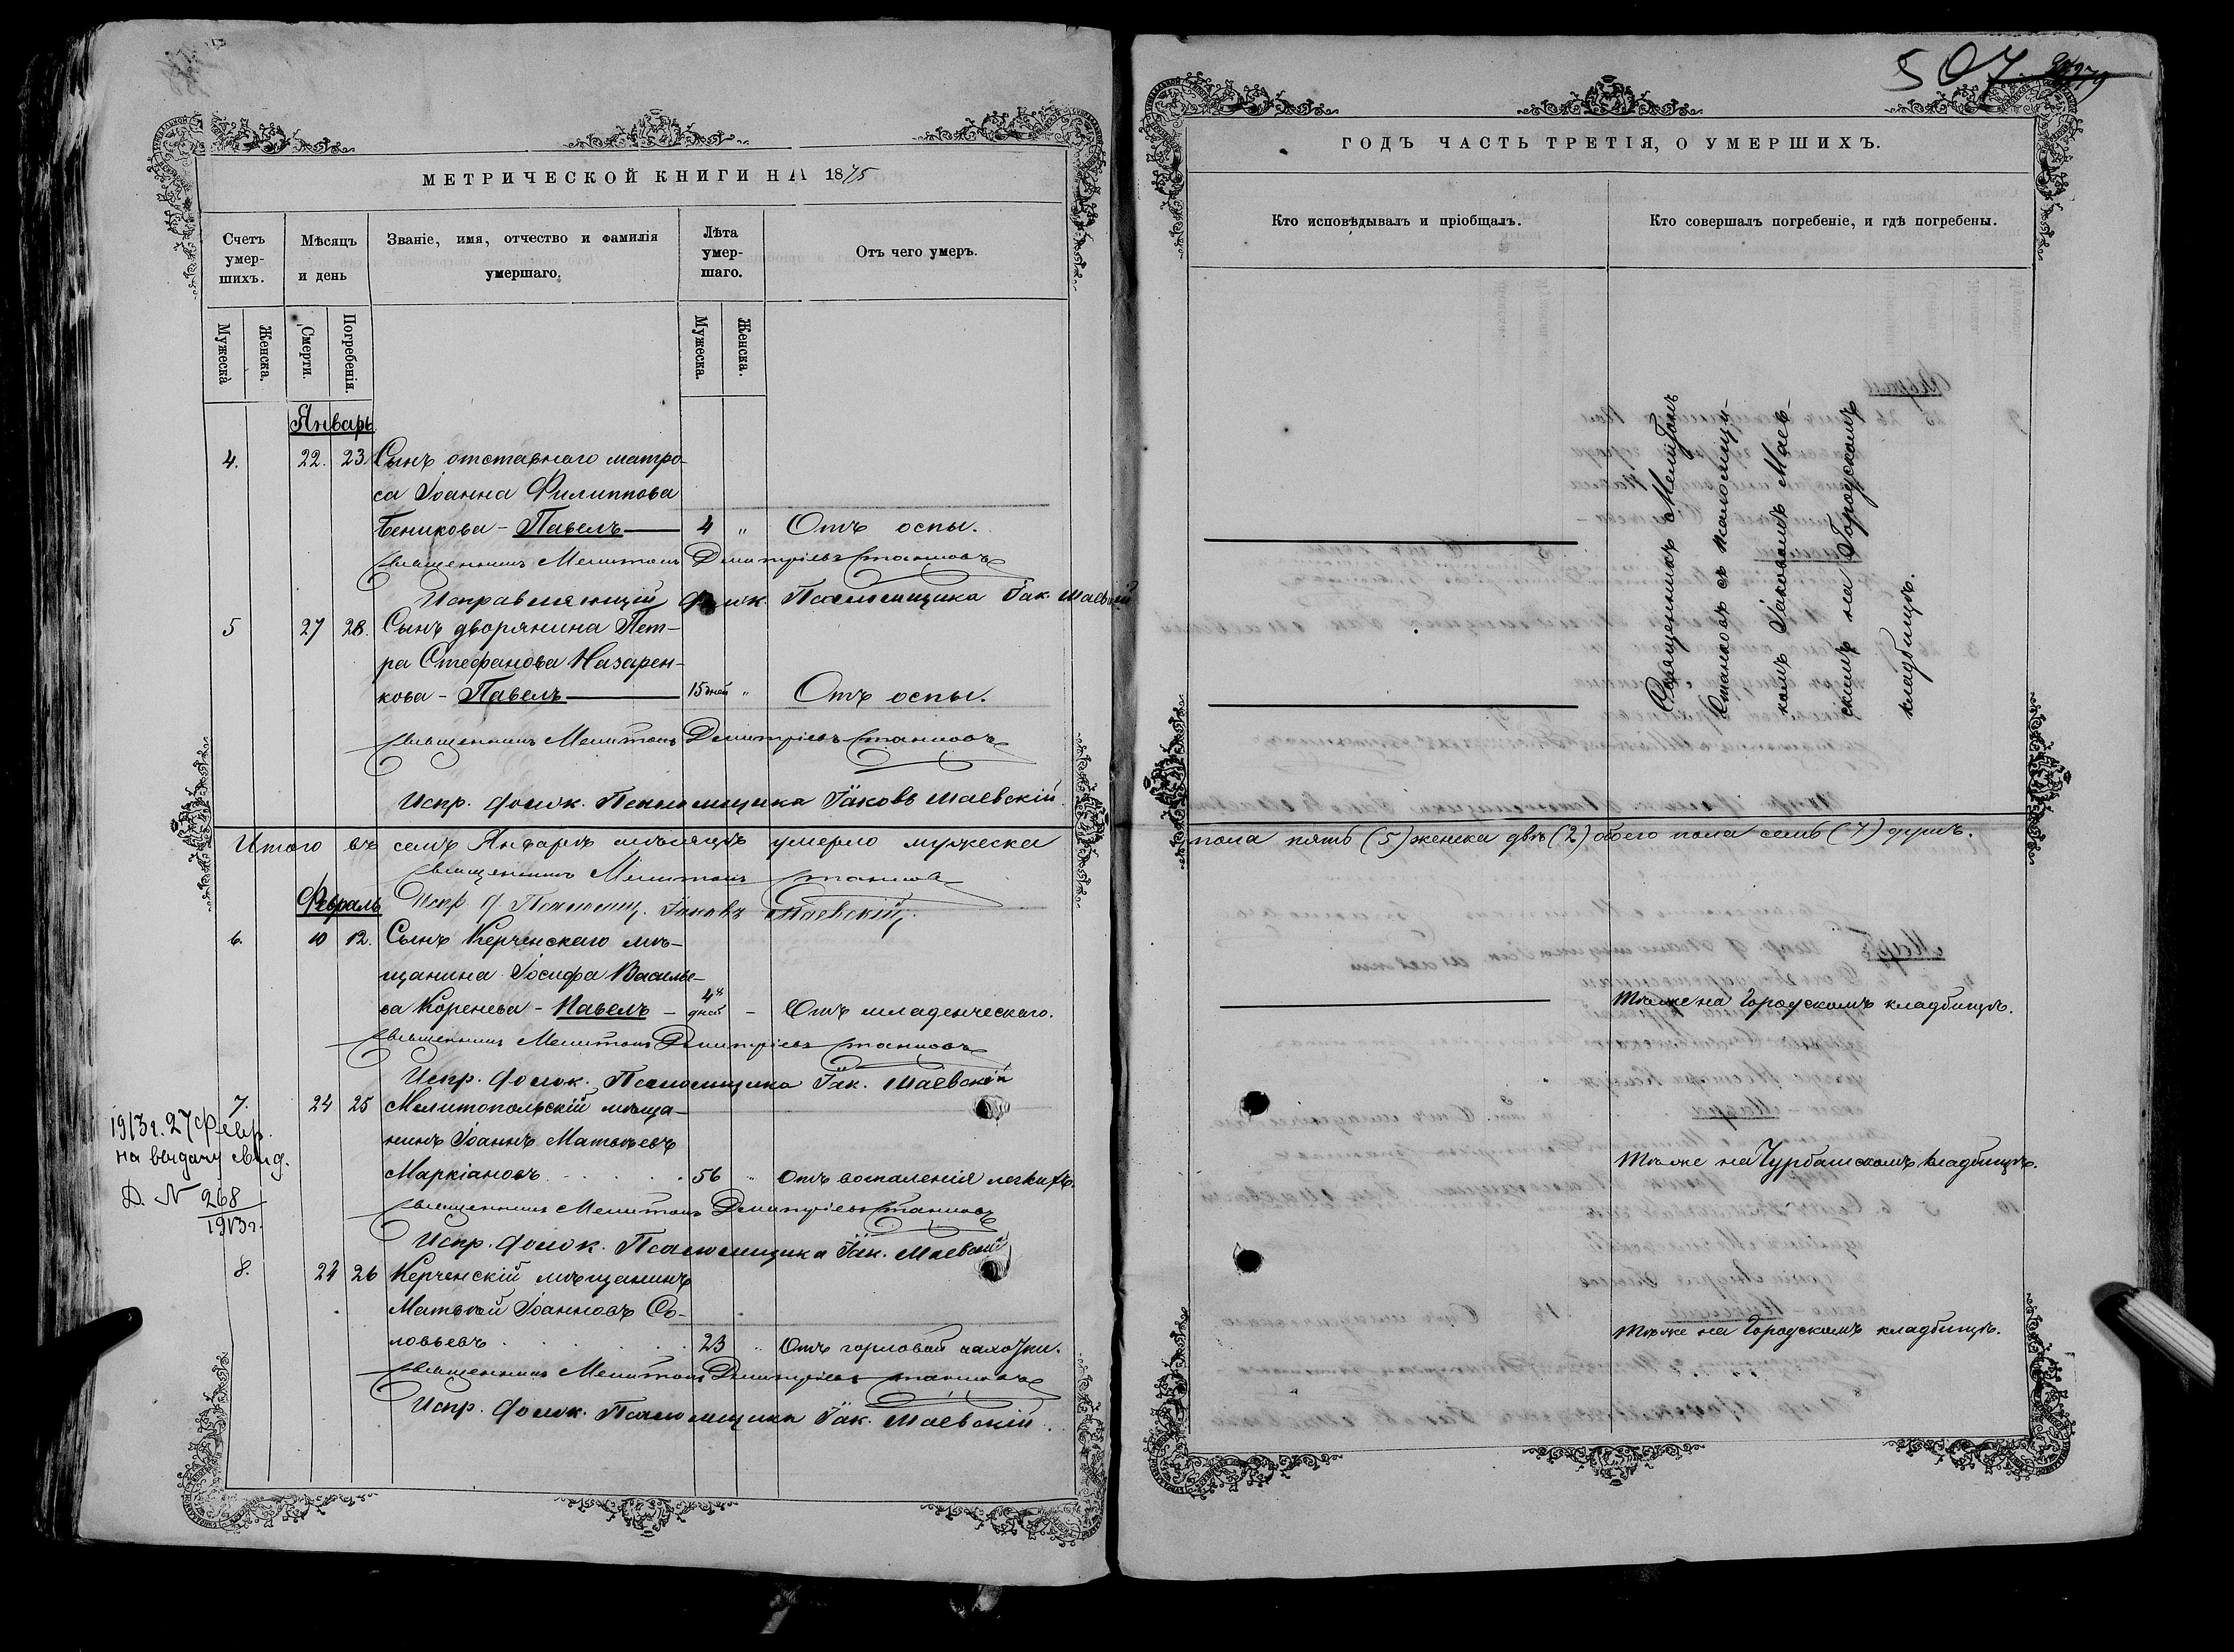 МЕТРИЧЕСКОЙ КНИГИ НА 1875
Счетъ умер-шихъ.
Мѣсяцъ и день
Званіе, имя, отчество и фамилія умершаго.
Лѣта умер-шаго.
Отъ чего умеръ.
Мужеска
Женска.
Смерти.
Погребенія.
Мужеска.
Женска.
Январь
4. 22. 23. Сынъ отставнаго матро-
са Іоанна Филиппова
Беникова - Павелъ 4 „ Отъ оспы.
Священникъ Мелитонъ Дмитріевъ Станковъ
Исправляющій должн. Псаломщика Іак. Маевскій
5 27 28. Сынъ дворянина Пет-
ра Стефанова Назарен-
кова - Павелъ 15 дней „ Отъ оспы.
Священникъ Мелитонъ Дмитріевъ Станковъ
Испр. должн. Псаломщика Іаковъ Маевскій.
Итого въ семъ Январѣ мѣсяцѣ умерло мужеска
Священникъ Мелитонъ Станковъ
Испр. д. Псаломщ. Іаковъ Маевскій.
Февраль
6. 10 12. Сынъ Керченскаго мѣ-
щанина Іосифа Василье-
ва Коренева - Павелъ - 48 дней - Отъ младенческаго.
Священникъ Мелитонъ Дмитріевъ Станковъ
Испр. должн. Псаломщика Іак. Маевскій
7. 24 25 Мелитопольскій мѣща-
нинъ Іоаннъ Матвѣевъ
Маркіановъ 56 „ Отъ воспаленія легкихъ.
Священникъ Мелитонъ Дмитріевъ Станковъ
Испр. должн. Псаломщика Іак. Маевскій
1913г. 27 Февр.
на выдачу свид.
Д. № 268
1913г.
8. 24 26 Керченскій мѣщанинъ
Матвѣй Іоанновъ Со-
ловьевъ 23 „ Отъ горловой чахотки.
Священникъ Мелитонъ Дмитріевъ Станковъ
Испр. должн. Псаломщика Іак. Маевскій.
507
ГОДЪ ЧАСТЬ ТРЕТІЯ, О УМЕРШИХЪ.
Кто исповѣдывалъ и пріобщалъ.
Кто совершалъ погребеніе, и гдѣ погребены.
Священникъ Мелитонъ
Станковъ съ псаломщи-
комъ Іаковомъ Маев-
скимъ на Городскомъ
кладбищѣ.
пола пять (5) женска двѣ (2) обоего пола семь (7) душъ.
Тѣ же на Городскомъ кладбищѣ.
Тѣ же на Чурбашскомъ кладбищѣ.
Тѣ же на Городскомъ кладбищѣ.